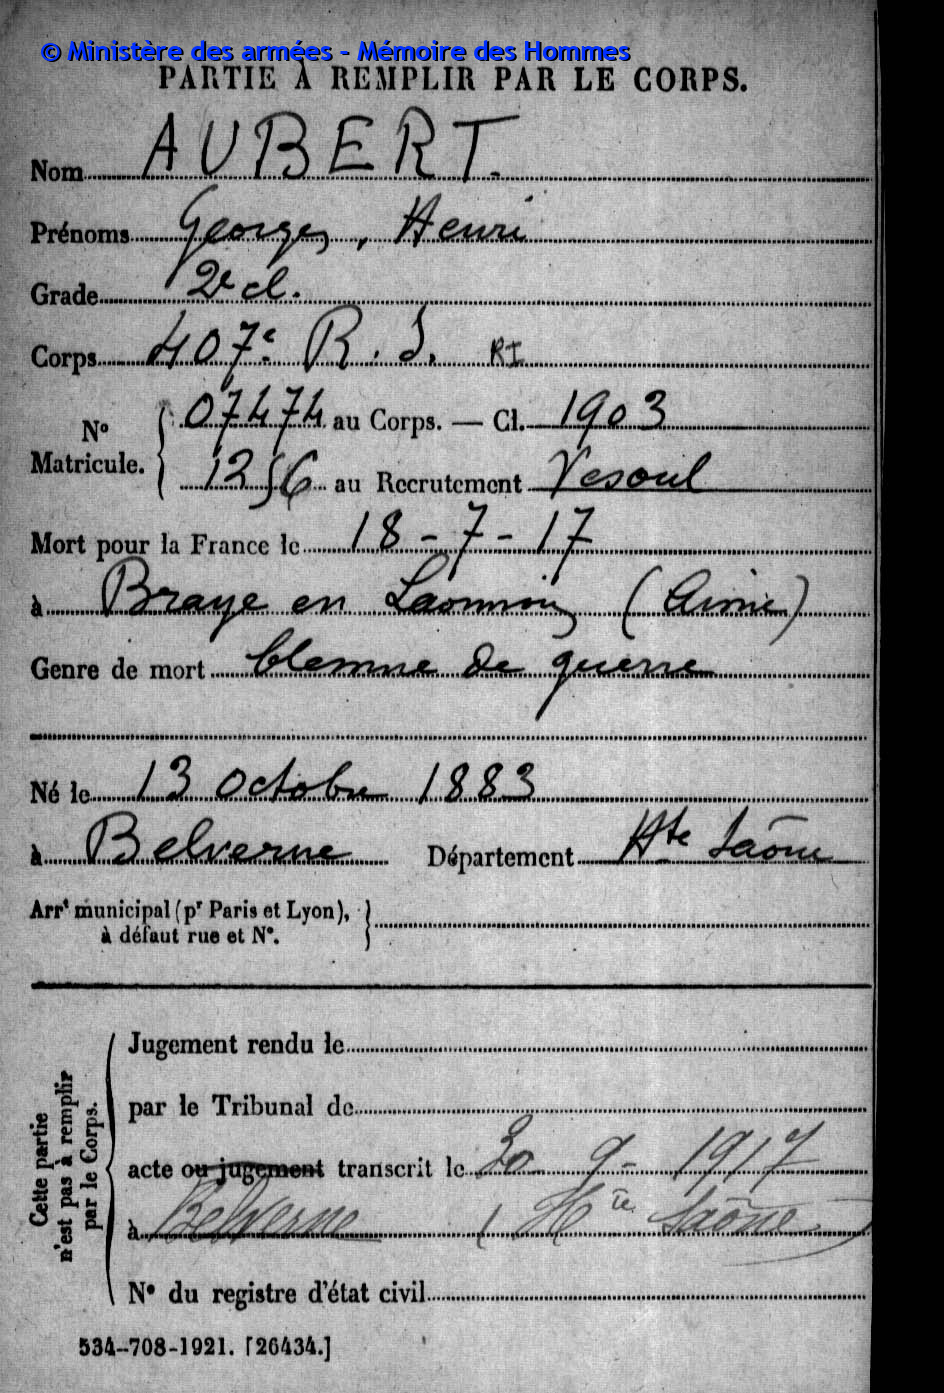 © Ministère des armées - Mémoire des Hommes
PARTIE À REMPLIR PAR LE CORPS.
Nom AUBERT.
Prénoms Georges, Henri
Grade 2e cl.
Corps 407e R. I. RI
No Matricule. { 07474 au Corps. — Cl. 1903
1256 au Recrutement Vesoul
Mort pour la France le 18-7-17
à Braye en Laonnois (Aisne)
Genre de mort blessure de guerre
Né le 13 octobre 1883
à Belverne Département Hte Saône
Arrt municipal (pr Paris et Lyon), }
à défaut rue et No.
Cette partie
n'est pas à remplir
par le Corps.
Jugement rendu le
par le Tribunal de
acte ou jugement transcrit le 30 9- 1917
à Belverne (Hte Saône)
No du registre d'état civil
534-708-1921. [26434.]